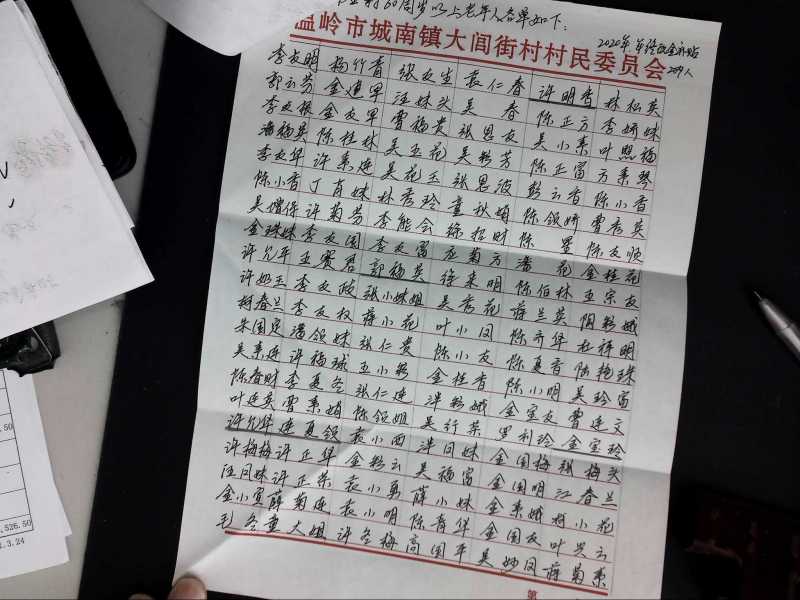 村60周岁以上老年人名单如下:
温岭市城南镇大闾街村村民委员会
2020年年终改金补贴
209人
李友明 杨竹青 张友生 袁仁春 许明香 林松英
郭云芬 金建军 汪妹头 吴春 陈正方 李妍妹
李友根 金友军 曹福贵 张恩友 吴小素 叶照福
潘福英 陈桂林 吴玉花 吴彩芳 陈正富 方素琴
李友华 许素连 吴花玉 张恩波 彭云香 陈小香
陈小香 丁肖妹 林秀玲 童秋娟 陈领娇 曹彦英
吴增保 许菊芳 李能会 徐招财 陈星 陈友顺
金珠妹 李友国 李友富 应菊方 潘花 金桂花
许允平 王赛君 郭福英 徐来明 陈伯林 王宗友
许奶玉 李友政 张小妹姐 吴秀花 薛兰英 阴彩娥
柯春兰 李友权 薛小花 叶小凤 陈齐华 杜祥明
朱国定 潘领妹 张仁贵 陈小友 陈夏香 陈艳珠
吴素连 许福球 王小彩 金桂香 陈小明 吴玲富
陈春财 李夏冬 张仁连 泮彩娥 金宝友 曹连文
叶连英 曹素娟 陈领姐 吴行苏 罗利珍 金宝玲
许允华 连夏领 袁小西 泮日妹 金国梅 张梅头
许梅梅 许正华 金彩云 吴福富 金国明 江春兰
汪月妹 许正东 袁小勇 薛小妹 金素娥 柯小花
金小宝 薛菊连 袁小明 陈春华 金国友 叶兴云
毛冬 童大姐 许冬梅 高国平 吴妙凤 薛菊素
第
.50
,526.50
.3.24